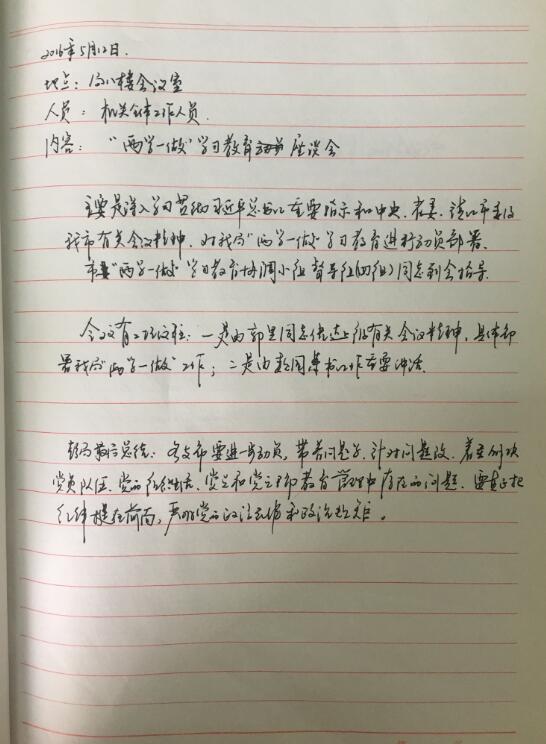 2016年5月12日.
地点：局八楼会议室
人员：机关全体工作人员.
内容："两学一做"学习教育座谈会
主要是深入学习贯彻习近平总书记重要指示和中央、省委、镇江市委及
我市有关会议精神，对我局"两学一做"学习教育进行动员部署。
市委"两学一做"学习教育协调小组督导组(四组)同志到会指导.
会议有二项议程：一是由同志传达上级有关会议精神，具体部
署我局"两学一做"工作；二是由书记作重要讲话.
最后总结：各支部要进一步动员，带着问题学、针对问题改，着重解决
党员队伍、党的组织生活、党员和党员干部教育管理中存在的问题. 要把
纪律挺在前面，严明党的政治纪律和政治规矩。